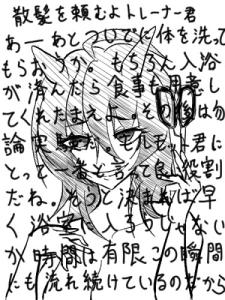 散髪を頼むよトレーナー君
あーあとついでに体を洗って
もらおうか。もちろん入浴
が済んだら食事も用意し
てくれたまえよ。その後は勿
論実験だ。モルモット君に
とって一番と言って良い役割
だね。そうと決まれば早
く浴室へ入ろうじゃない
か時間は有限この瞬間
にも流れ続けているのだから